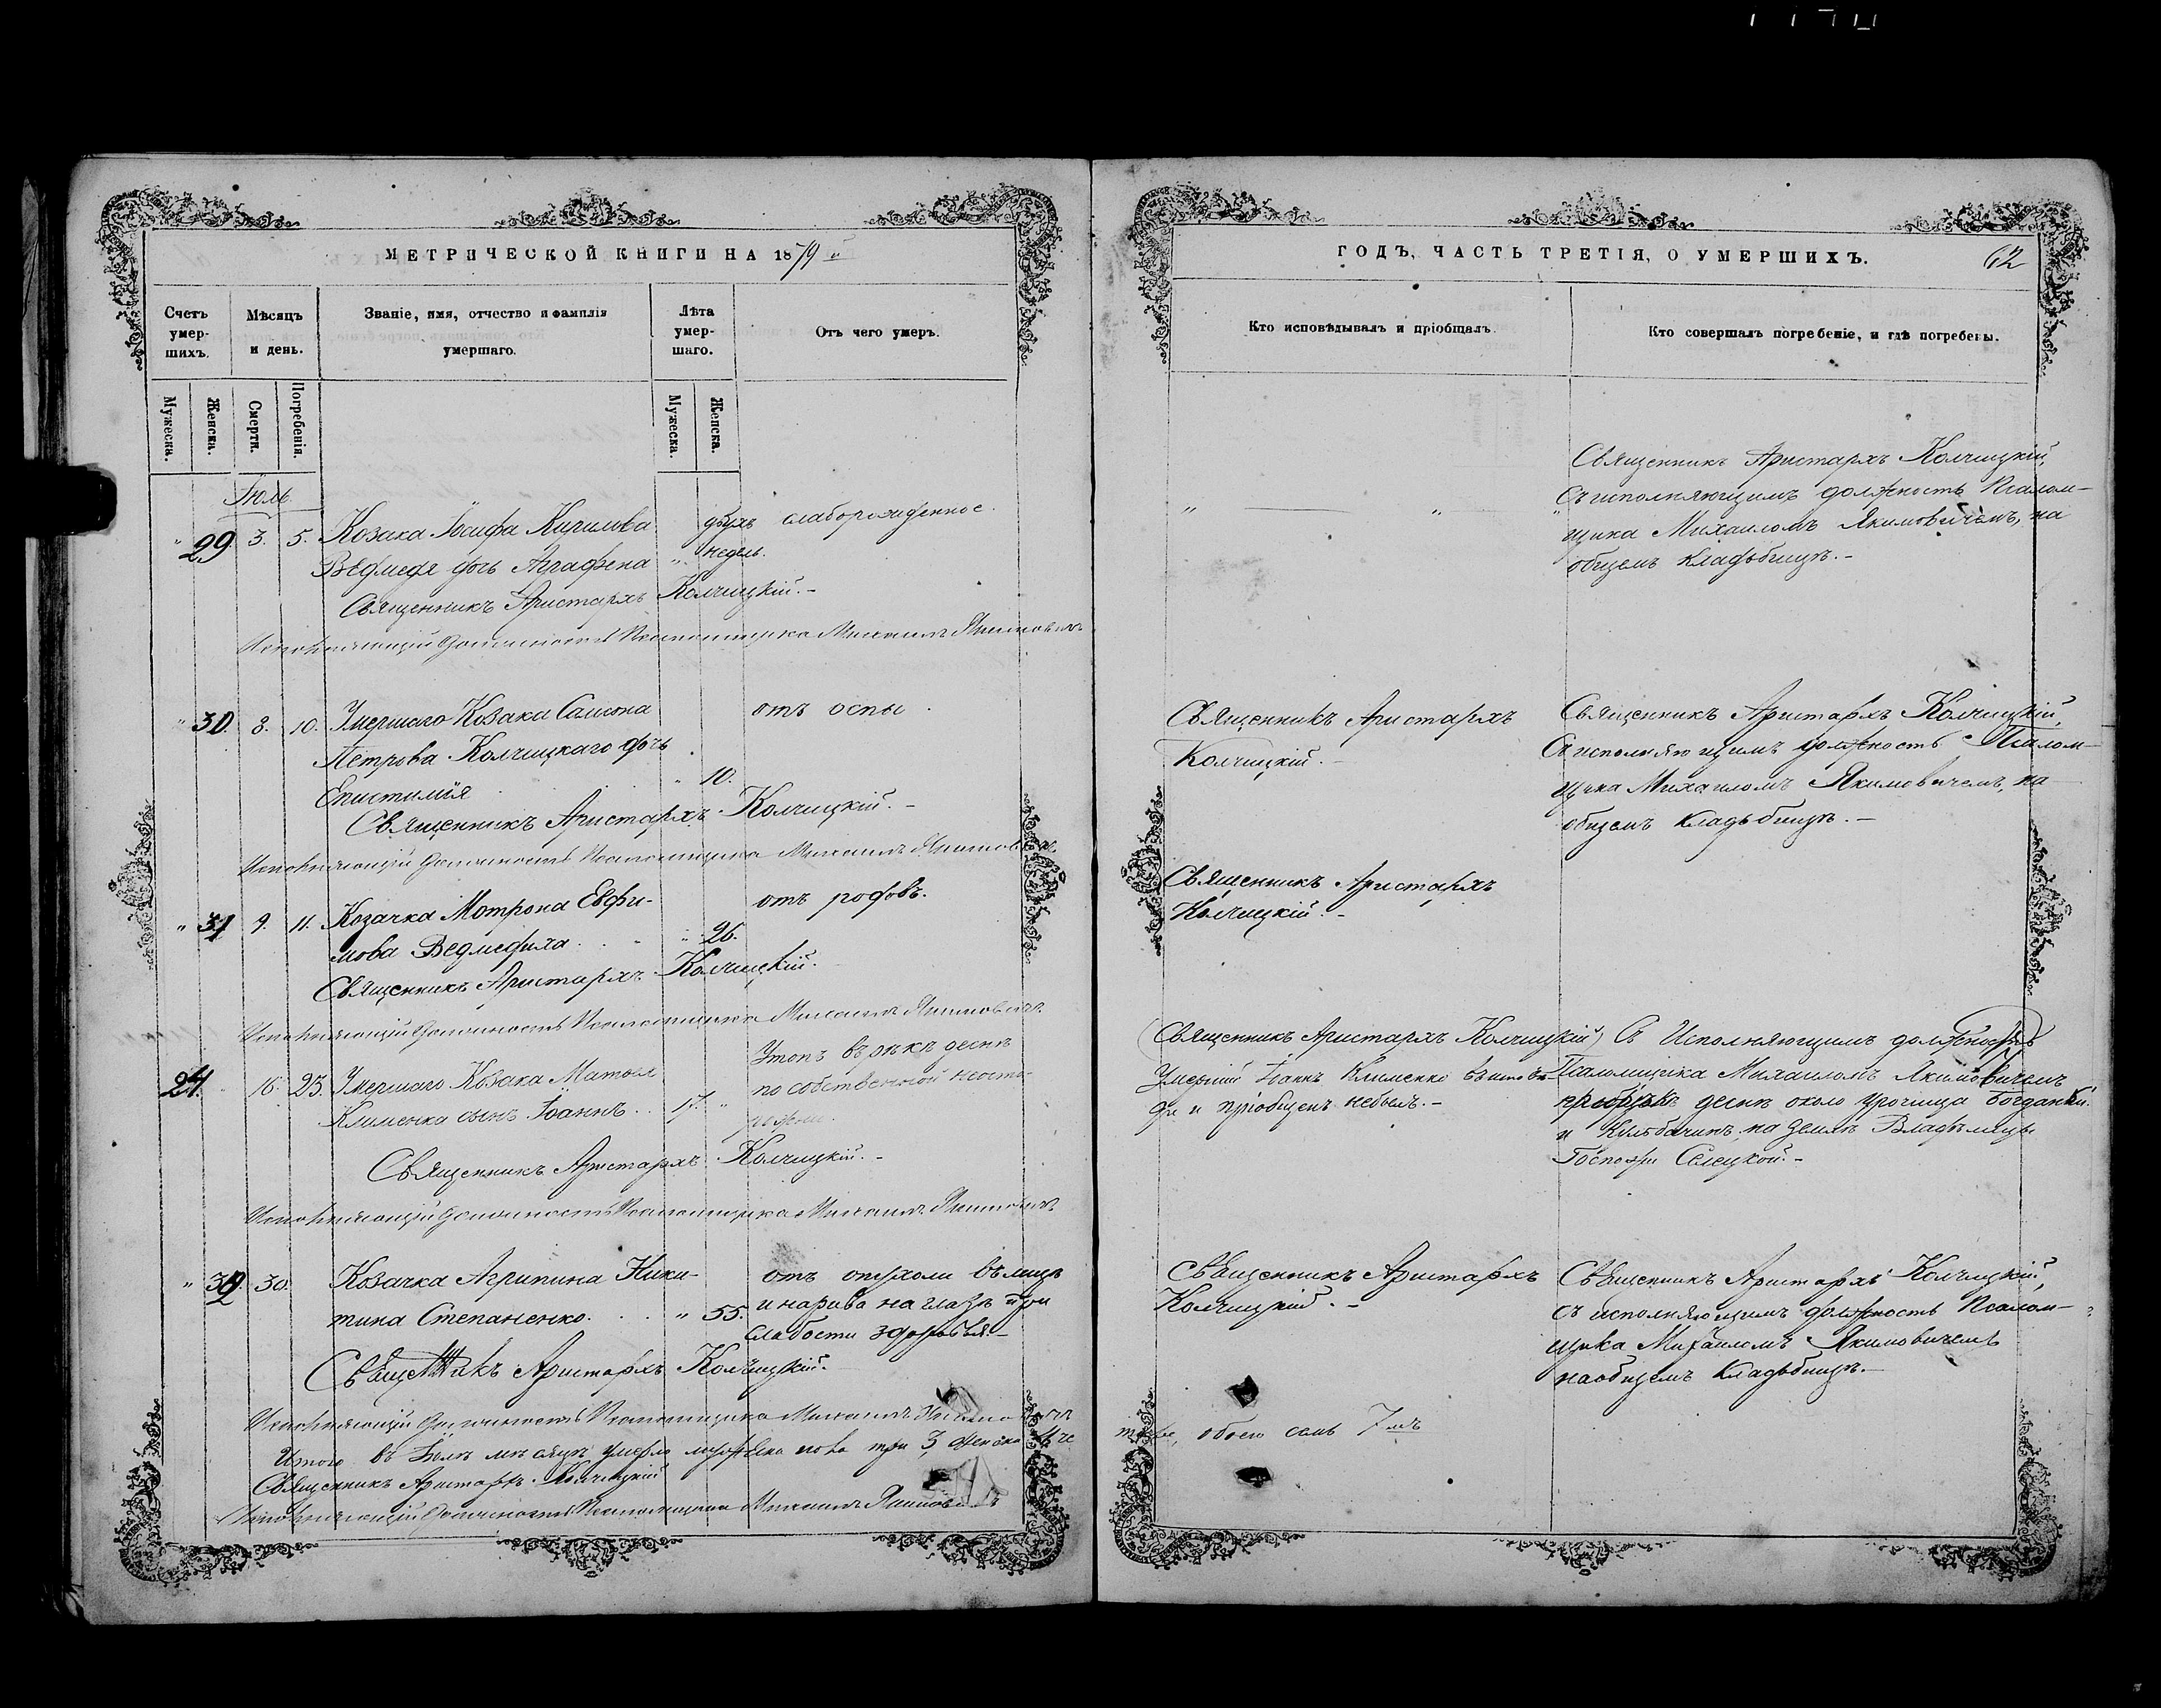 МЕТРИЧЕСКОЙ КНИГИ НА 1879й
Счетъ умер-шихъ.
Мѣсяцъ и день.
Званіе, имя, отчество и фамилія умершаго.
Лѣта умер-шаго.
Отъ чего умеръ.
Мужеска.
Женска.
Смерти.
Погребенія.
Мужеска.
Женска.
Іюль.
" 29 3. 5. Козака Іосифа Кирилова двухъ слаборожденное.
Ведмедя дочь Агафена " недель.
Священникъ Аристархъ Колчицкій.-
Исполняющій должность Псаломщика Михаилъ Якимовичъ
" 30. 8. 10. Умершаго Козака Самсона отъ оспы.
Петрова Колчицкаго дочь
Епистимія " 10.
Священникъ Аристархъ Колчицкій.-
Исполняющій должность Псаломщика Михаилъ Якимовичъ.
" 31 9. 11. Козачка Мотрона Евфи- отъ родовъ.
мова Ведмедиха " 26.
Священникъ Аристархъ Колчицкій.
Исполняющій должность Псаломщика Михаилъ Якимовичъ.
Утопъ въ рѣкѣ деснѣ
24. 16. 23. Умершаго Козака Матвея по собственной неосто-
Клименка сынъ Іоаннъ 17. "
Священникъ Аристархъ Колчицкій.-
Исполняющій должность Псаломщика Михаилъ Якимовичъ
" 32. 30. Козачка Агрипина Ники- отъ опухоли въ лицѣ
тина Степаненко. " 55. и нарива на глазѣ при
слабости здоровья-
Священникъ Аристархъ Колчицкій.
Исполняющій должность Псаломщика Михаилъ
Итого въ Іюлѣ мѣсяцѣ умерло мужеска пола три 3, женска 4 че
Священникъ Аристархъ Колчицкій
Исполняющій должность Псаломщика Михаилъ Якимовичъ
ГОДЪ, ЧАСТЬ ТРЕТІЯ, О УМЕРШИХЪ. 62
Кто исповѣдывалъ и пріобщалъ.
Кто совершалъ погребеніе, и гдѣ погребены.
Священникъ Аристархъ Колчицкій,
" " " Съ исполняющимъ должность Псалом-
щика Михаиломъ Якимовичемъ, на
общемъ кладьбищѣ.-
Священникъ Аристархъ
Колчицкій.-
Священникъ Аристархъ Колчицкій,
Съ исполняющимъ должность Псалом-
щика Михаиломъ Якимовичемъ, на
общемъ кладьбищѣ.-
Священникъ Аристархъ
Колчицкій.-
(Священникъ Аристархъ Колчицкій) Съ Исполняющимъ должность
Умершій Іоаннъ Клименко
и пріобщенъ небылъ.-
Псаломщика Михаиломъ Якимовичемъ
деснѣ около урочища Богданки
и на Землѣ Владѣлицы
Госпожи Селецкой.-
Священникъ Аристархъ
Колчицкій.-
Священникъ Аристархъ Колчицкій,
съ исполняющимъ должность Псалом-
щика Михаиломъ Якимовичемъ
на общемъ кладьбищѣ.-
обоего 7мъ